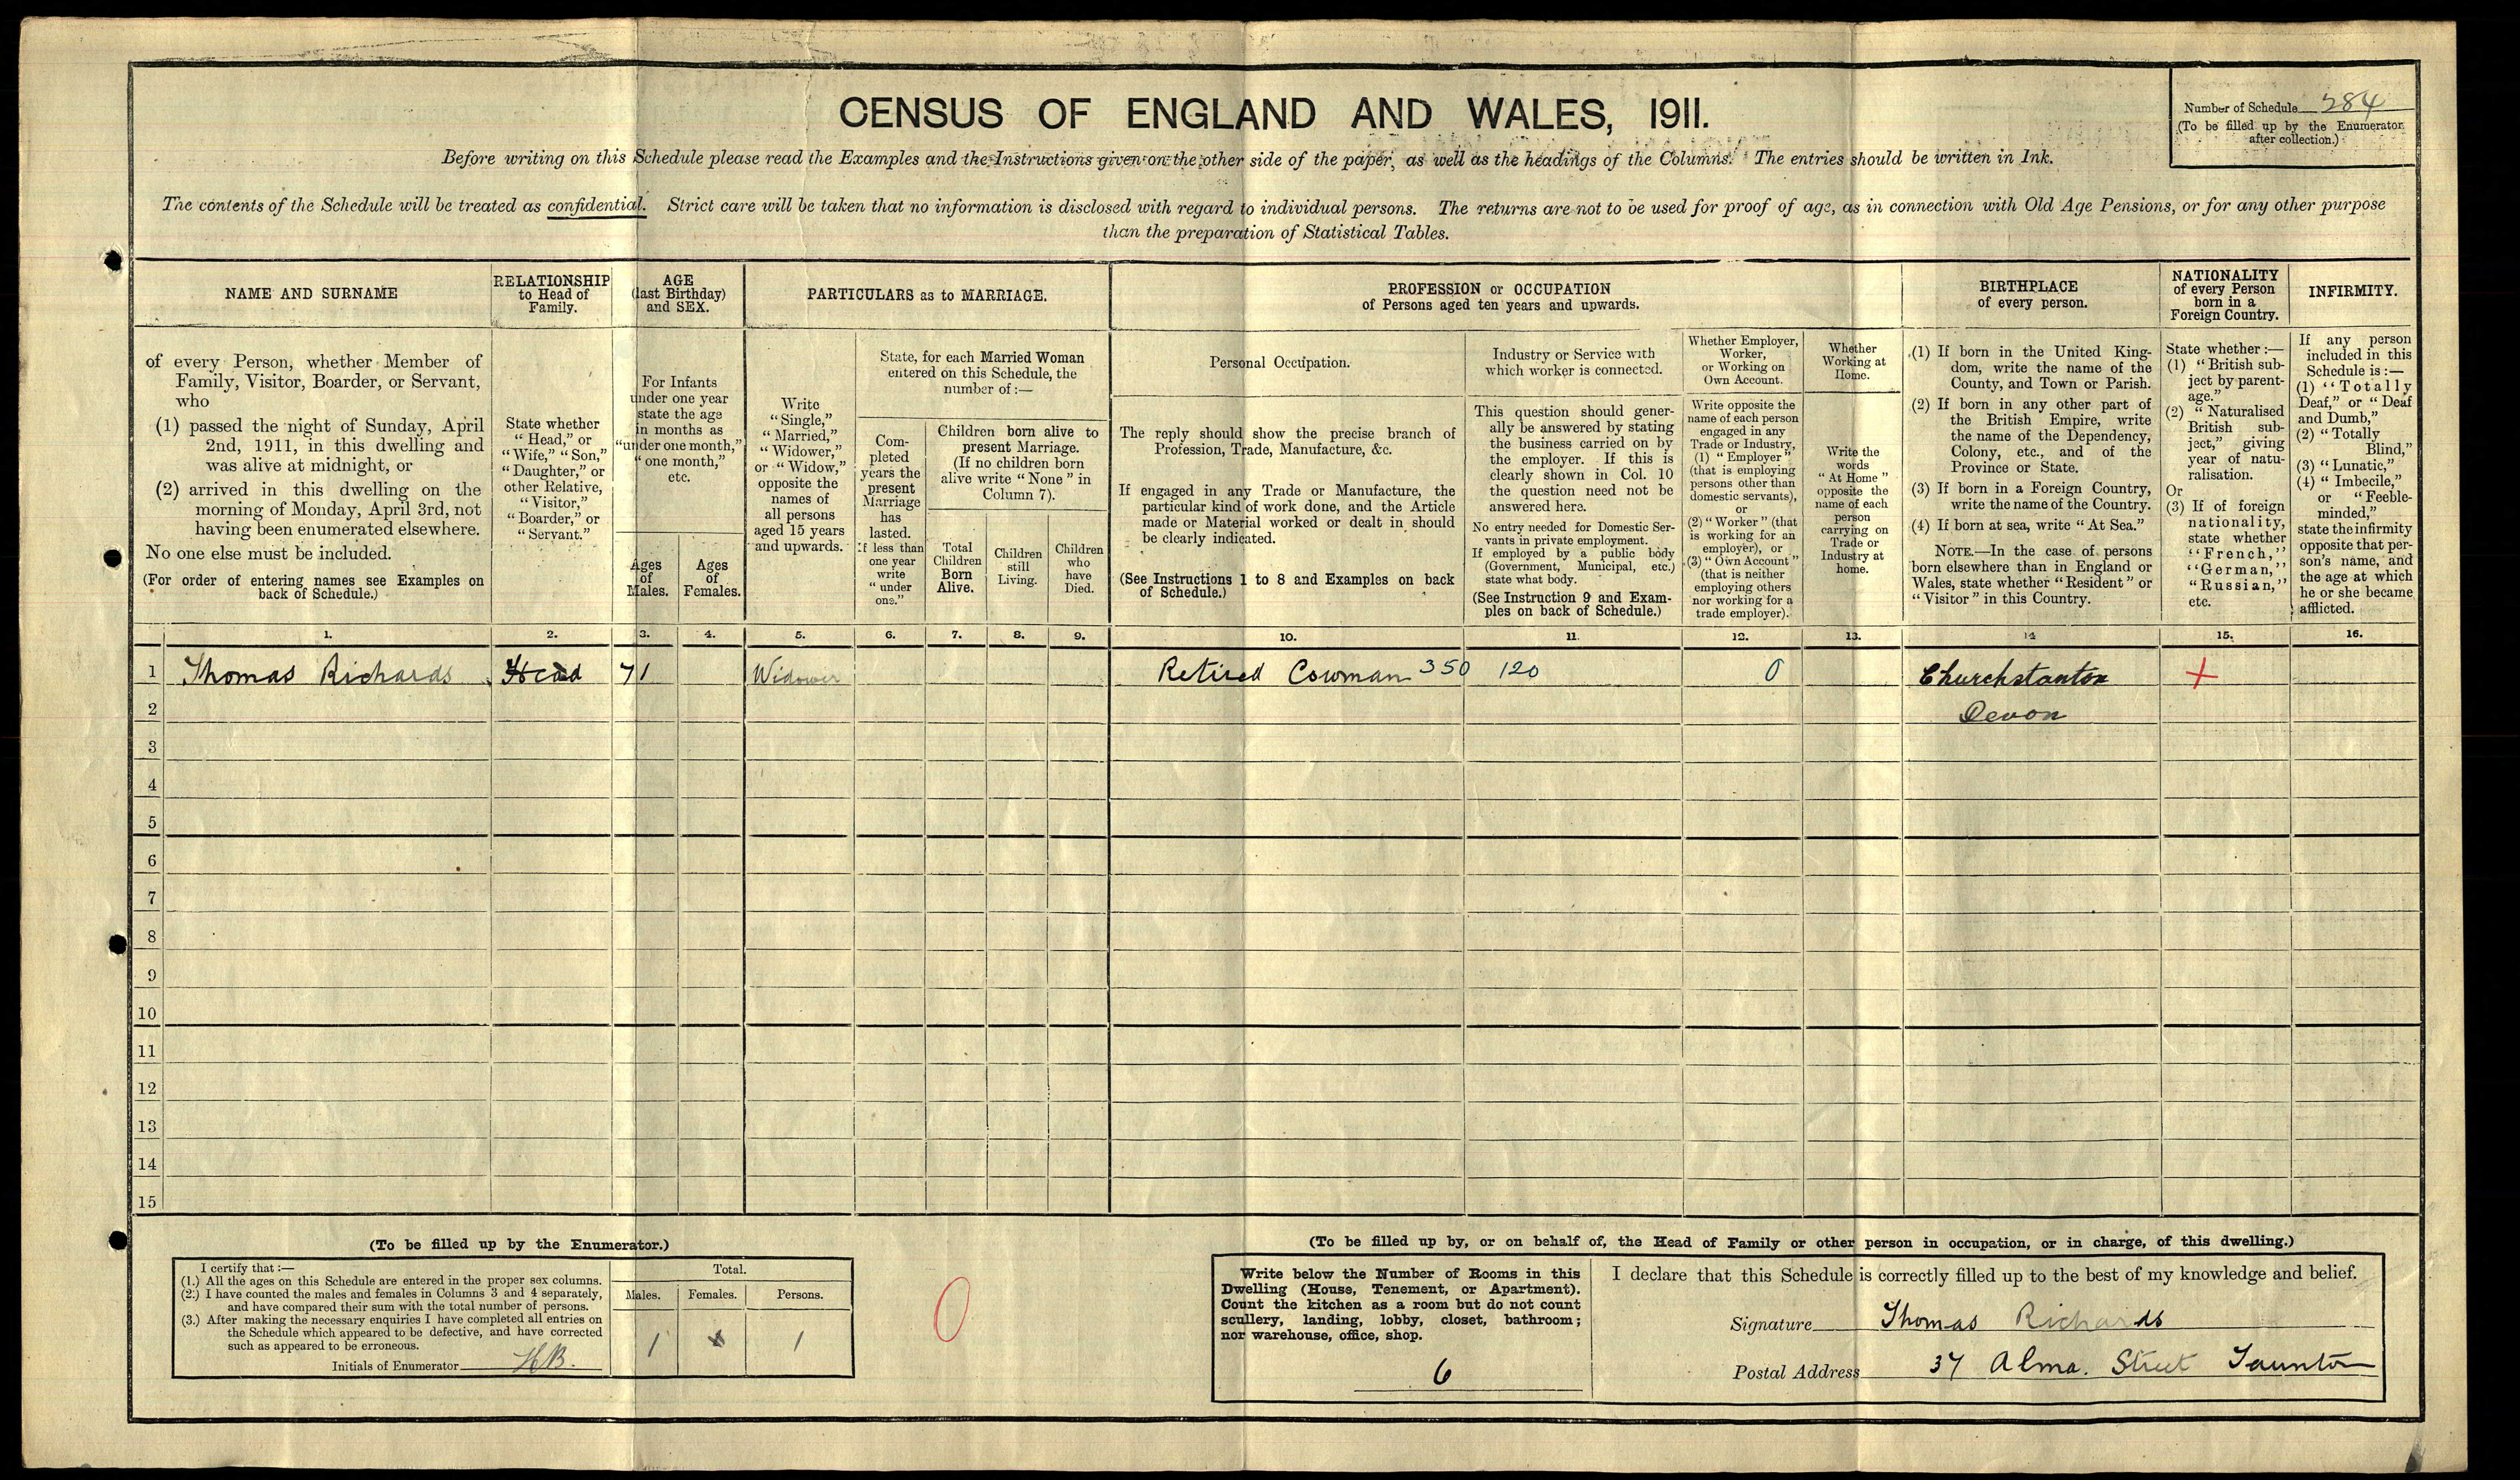 CENSUS OF ENGLAND AND WALES, 1911.
Number of Schedule 284
(To be filled up by the Enumerator
after collection.)
Before writing on this Schedule please read the Examples and the Instructions given on the other side of the paper, as well as the headings of the Columns. The entries should be written in Ink.
The contents of the Schedule will be treated as confidential. Strict care will be taken that no information is disclosed with regard to individual persons. The returns are not to be used for proof of age, as in connection with Old Age Pensions, or for any other purpose
than the preparation of Statistical Tables.
NAME AND SURNAME
of every Person, whether Member of
Family, Visitor, Boarder, or Servant,
who
(1) passed the night of Sunday, April
2nd, 1911, in this dwelling and
was alive at midnight, or
(2) arrived in this dwelling on the
morning of Monday, April 3rd, not
having been enumerated elsewhere.
No one else must be included.
(For order of entering names see Examples on
back of Schedule.)
RELATIONSHIP
to Head of
Family.
State whether
"Head," or
"Wife," "Son,"
"Daughter," or
other Relative,
"Visitor,"
"Boarder," or
"Servant."
AGE
(last Birthday)
and SEX.
For Infants
under one year
state the age
in months as
"under one month,"
"one month,"
etc.
Ages
of
Males.
Ages
of
Females.
PARTICULARS as to MARRIAGE.
Write
"Single,"
"Married,"
"Widower,"
or "Widow,"
opposite the
names of
all persons
aged 15 years
and upwards.
State, for each Married Woman
entered on this Schedule, the
number of :—
Com-
pleted
years the
present
Marriage
has
lasted.
If less than
one year
write
"under
one."
Children born alive to
present Marriage.
(If no children born
alive write "None" in
Column 7).
Total
Children
Born
Alive.
Children
still
Living.
Children
who
have
Died.
PROFESSION or OCCUPATION
of Persons aged ten years and upwards.
Personal Occupation.
The reply should show the precise branch of
Profession, Trade, Manufacture, &c.
If engaged in any Trade or Manufacture, the
particular kind of work done, and the Article
made or Material worked or dealt in should
be clearly indicated.
(See Instructions 1 to 8 and Examples on back
of Schedule.)
Industry or Service with
which worker is connected.
This question should gener-
ally be answered by stating
the business carried on by
the employer. If this is
clearly shown in Col. 10
the question need not be
answered here.
No entry needed for Domestic Ser-
vants in private employment.
If employed by a public body
(Government, Municipal, etc.)
state what body.
(See Instruction 9 and Exam-
ples on back of Schedule.)
Whether Employer,
Worker,
or Working on
Own Account.
Write opposite the
name of each person
engaged in any
Trade or Industry,
(1) "Employer"
(that is employing
persons other than
domestic servants),
or
(2) "Worker" (that
is working for an
employer), or
(3) "Own Account"
(that is neither
employing others
nor working for a
trade employer).
Whether
Working at
Home.
Write the
words
"At Home"
opposite the
name of each
person
carrying on
Trade or
Industry at
home.
BIRTHPLACE
of every person.
(1) If born in the United King-
dom, write the name of the
County, and Town or Parish.
(2) If born in any other part of
the British Empire, write
the name of the Dependency,
Colony, etc., and of the
Province or State.
(3) If born in a Foreign Country,
write the name of the Country.
(4) If born at sea, write "At Sea."
NOTE.—In the case of persons
born elsewhere than in England or
Wales, state whether "Resident" or
"Visitor" in this Country.
NATIONALITY
of every Person
born in a
Foreign Country.
State whether :—
(1) "British sub-
ject by parent-
age."
(2) "Naturalised
British sub-
ject," giving
year of natu-
ralisation.
Or
(3) If of foreign
nationality,
state whether
"French,"
"German,"
"Russian,"
etc.
INFIRMITY.
If any person
included in this
Schedule is :—
(1) "Totally
Deaf," or "Deaf
and Dumb,"
(2) "Totally
Blind,"
(3) "Lunatic,"
(4) "Imbecile,"
or "Feeble-
minded,"
state the infirmity
opposite that per-
son's name, and
the age at which
he or she became
afflicted.
1. 2. 3. 4. 5. 6. 7. 8. 9. 10. 11. 12. 13. 14 15. 16.
1 Thomas Richards Head 71 Widower Retired Cowman 350 120 0 Churchstanton
Devon
2
3
4
5
6
7
8
9
10
11
12
13
14
15
(To be filled up by the Enumerator.)
I certify that :—
(1.) All the ages on this Schedule are entered in the proper sex columns.
(2.) I have counted the males and females in Columns 3 and 4 separately,
and have compared their sum with the total number of persons.
(3.) After making the necessary enquiries I have completed all entries on
the Schedule which appeared to be defective, and have corrected
such as appeared to be erroneous.
Initials of Enumerator HB.
Total.
Males. Females. Persons.
1 x 1
0
(To be filled up by, or on behalf of, the Head of Family or other person in occupation, or in charge, of this dwelling.)
Write below the Number of Rooms in this
Dwelling (House, Tenement, or Apartment).
Count the kitchen as a room but do not count
scullery, landing, lobby, closet, bathroom;
nor warehouse, office, shop.
6
I declare that this Schedule is correctly filled up to the best of my knowledge and belief.
Signature Thomas Richards
Postal Address 37 Alma. Street Taunton